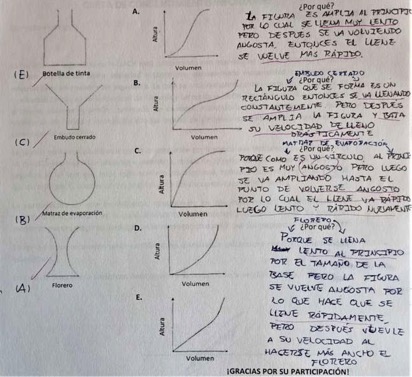 A.
¿Por qué?
LA FIGURA ES AMPLIA AL PRINCIPIO
POR LO CUAL SE LLENA MUY LENTO
PERO DESPUES SE VA VOLVIENDO
ANGOSTA, ENTONCES EL LLENE
SE VUELVE MAS RÁPIDO.
Altura
Volumen
(E)
Botella de tinta
B.
EMBUDO CERRADO
¿Por qué?
LA FIGURA QUE SE FORMA ES UN
RECTÁNGULO ENTONCES SE VA LLENANDO
CONSTANTEMENTE PERO DESPUÉS
SE AMPLIA LA FIGURA Y BAJA
SU VELOCIDAD DE LLENO
DRÁSTICAMENTE
Altura
Volumen
(C)
Embudo cerrado
C.
MATRAZ DE EVAPORACIÓN
¿Por qué?
PORQUE COMO ES UN CÍRCULO AL PRINCI-
PIO ES MUY ANGOSTO PERO LUEGO
SE VA AMPLIANDO HASTA EL
PUNTO DE VOLVERSE ANGOSTO
POR LO CUAL EL LLENE VA RÁPIDO
LUEGO LENTO Y RÁPIDO NUEVAMENTE
Altura
Volumen
(B)
Matraz de evaporación
D.
FLORERO
¿Por qué?
PORQUE SE LLENA
LENTO AL PRINCIPIO
POR EL TAMAÑO DE LA
BASE PERO LA FIGURA
SE VUELVE ANGOSTA POR
LO QUE HACE QUE SE
LLENE RÁPIDAMENTE,
PERO DESPUÉS VUELVE
A SU VELOCIDAD AL
HACERSE MÁS ANCHO EL
FLORERO
Altura
Volumen
(A)
Florero
E.
Altura
Volumen
¡GRACIAS POR SU PARTICIPACIÓN!